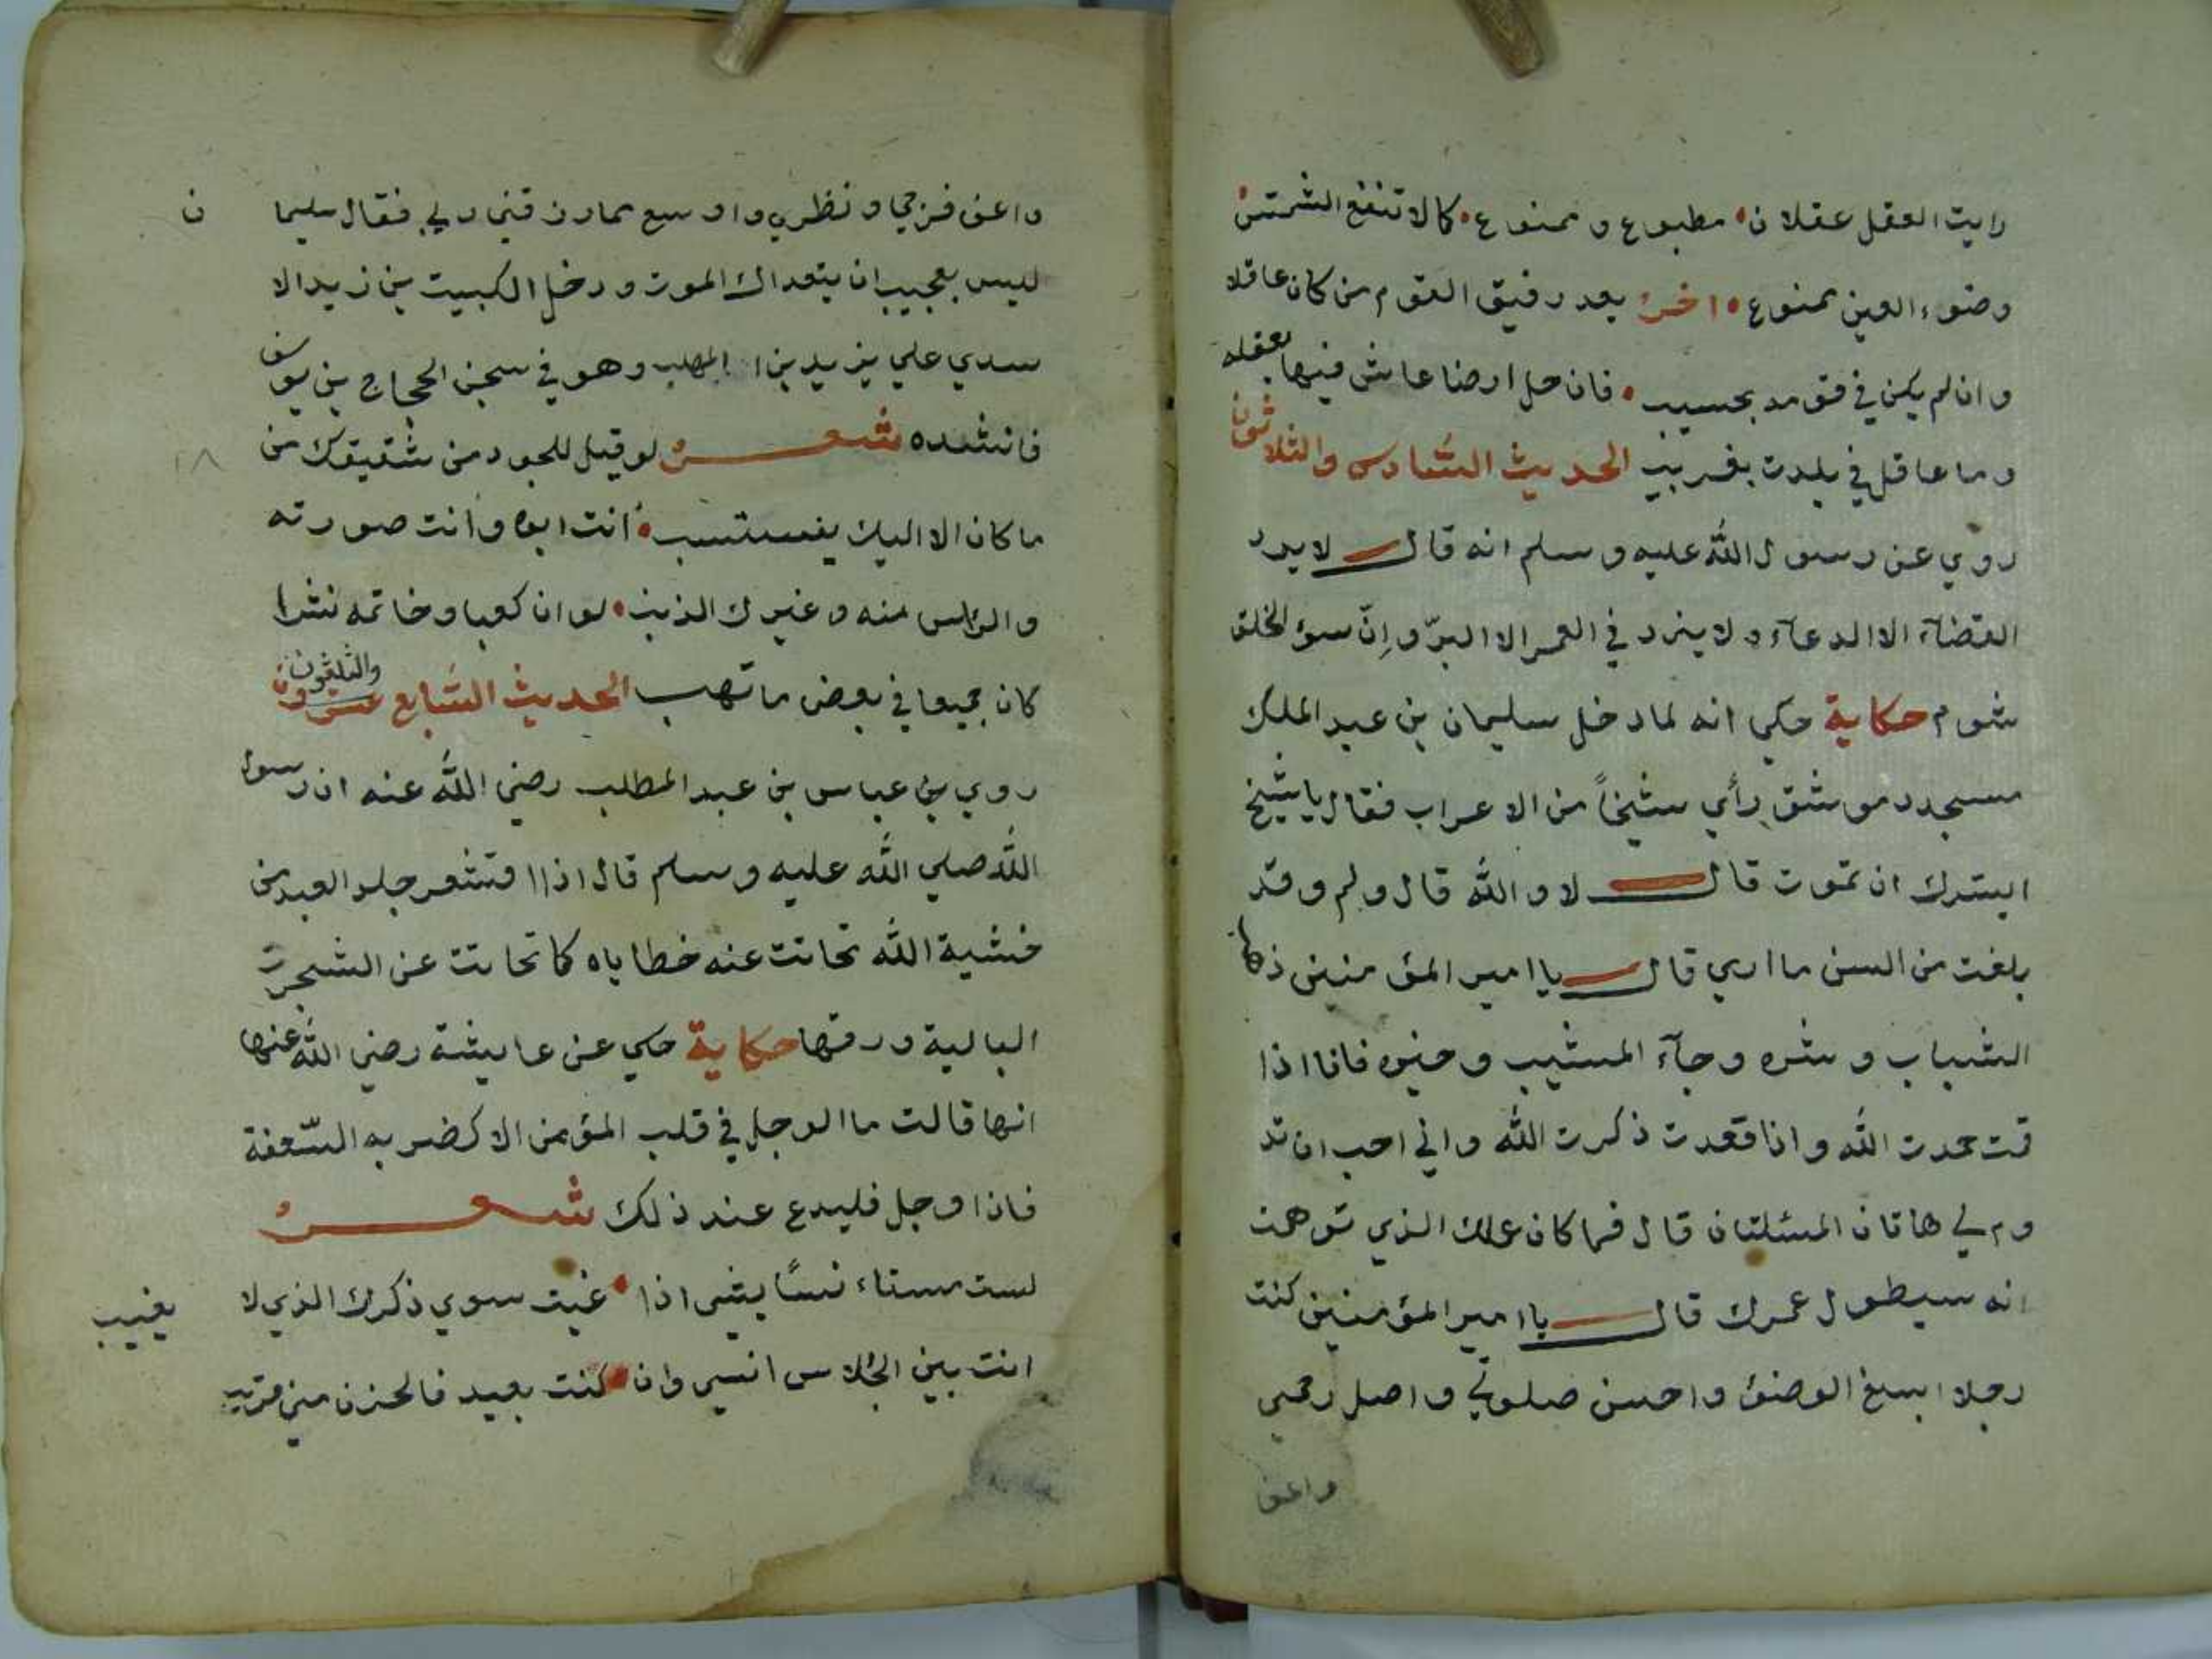 رايت العقل عقلان مطبوع وممنوع كما لا تنفع الشمس
وضوء العين ممنوع اخر يعد رفيق القوم من كان عاقلا
وان لم يكن في قومه بحسيب فان حل ارضا عاش فيها بعقله
وما عاقل في بلدت بغريب الحديث السّادس والثلاثون
روي عن رسول الله عليه وسلم انه قال لا يرد
القضآء الا الدعآء ولا يزد في العمر الا البرّ واِنّ سوٴ الخلق
شوم حكاية حكي انه لما دخل سليمان بن عبد الملك
مسجد دموشق رأي شيخاً من الاعراب فقال يا شيخ
ايسرك ان تموت قال لا والله قال ولم وقد
بلغت من السن ما اري قال يا امير المؤمنين ذهب
الشباب وشره وجآء المشيب وخيره فانا اذا
قت حمدت الله وانا قعدت ذكرت الله واني احب ان تد
وم لي هاتان المسئلتان قال فما كان عملك الذي توهمت
انه سيطول عمرك قال يا امير المؤمنين كنت
رجلا اسبغ الوضوٴ واحسن صلوتي واصل رحمي
واعف
واعف فرجي و نظري واوسع مما رزقني ربي فقال سليما ن
ليس بعجيب ان يتعداك الموت ودخل الكميت بن زيد الا
سدي علي يزيد بن المهلب وهو في سجن الحجاج بن يوسف
فانشده شعر لو قيل للجود من شقيقك من
ما كان الا اليك ينتسب انت ابوه وانت صورته
والرٔاس منه وغيرك الذنب لو ان كعبا وخاتمه نشرا
كان جميعا في بعض ما تهب الحديث السّابع عشرون والثلثون
روي بن عباس بن عبد المطلب رضي الله عنه ان رسول
الله صلي الله عليه وسلم قال اذا اقشعر جلد العبد من
خشية الله تحاتت عنه خطاياه كما تحاتت عن الشجرت
البالية ورقها حكاية حكي عن عايشة رضي الله عنها
انها قالت ما الوجل في قلب المؤمن الا كضربه السّعفة
فاذا وجل فليدع عند ذلك شعر
لست مستاءنسًا بشي اذا غبت سوي ذكرك الذي لا يغيب
انت بين الجٔلاس انسي وان كنت بعيد فالحزن مني قريب